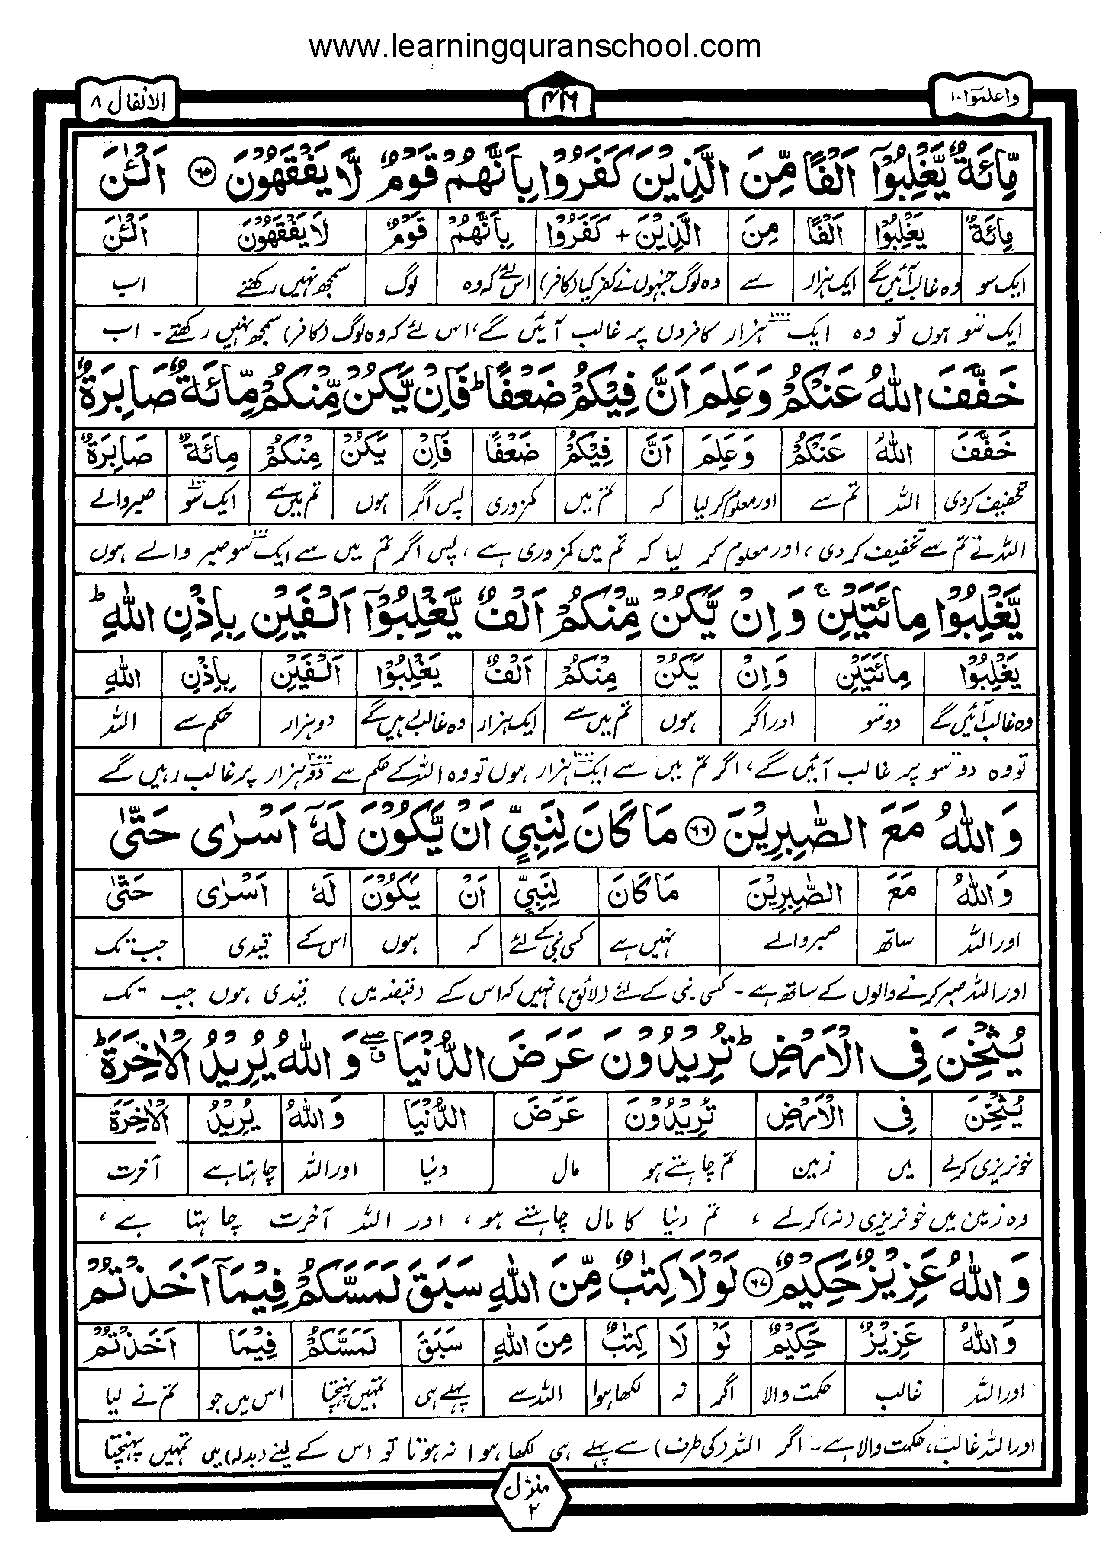 www.learningquranschool.com
واعلموٓا ١٠
۴۲۶
الانفال ۸
مِّائَةٌ يَّغْلِبُوْٓا اَلْفًا مِّنَ الَّذِيْنَ كَفَرُوْا بِاَنَّهُمْ قَوْمٌ لَّا يَفْقَهُوْنَ ۶۵ اَلْـٰٔنَ
مِائَةٌ يَغْلِبُوْٓا اَلْفًا مِنَ الَّذِيْنَ + كَفَرُوْا بِاَنَّهُمْ قَوْمٌ لَا يَفْقَهُوْنَ اَلْـٰٔنَ
ایک سو وہ غالب آئیں گے ایک ہزار سے وہ لوگ جنہوں نے کفر کیا (کافر) اس لئے کہ وہ لوگ سمجھ نہیں رکھتے اب
ایک سو ہوں تو وہ ایک ۱۰۰۰ ہزار کافروں پر غالب آئیں گے، اس لئے کہ وہ لوگ (کافر) سمجھ نہیں رکھتے ۔ اب
خَفَّفَ اللّٰهُ عَنْكُمْ وَعَلِمَ اَنَّ فِيْكُمْ ضَعْفًا ؕ فَاِنْ يَّكُنْ مِّنْكُمْ مِّائَةٌ صَابِرَةٌ
خَفَّفَ اللّٰهُ عَنْكُمْ وَعَلِمَ اَنَّ فِيْكُمْ ضَعْفًا فَاِنْ يَكُنْ مِنْكُمْ مِائَةٌ صَابِرَةٌ
تخفیف کردی اللہ تم سے اور معلوم کر لیا کہ تم میں کمزوری پس اگر ہوں تم میں سے ایک ۱۰۰ سو صبر والے
اللہ نے تم سے تخفیف کر دی، اور معلوم کر لیا کہ تم میں کمزوری ہے، پس اگر تم میں سے ایک ۱۰۰ سو صبر والے ہوں
يَّغْلِبُوْا مِائَتَيْنِ ۚ وَاِنْ يَّكُنْ مِّنْكُمْ اَلْفٌ يَّغْلِبُوْٓا اَلْفَيْنِ بِاِذْنِ اللّٰهِ ؕ
يَغْلِبُوْا مِائَتَيْنِ وَاِنْ يَكُنْ مِنْكُمْ اَلْفٌ يَغْلِبُوْٓا اَلْفَيْنِ بِاِذْنِ اللّٰهِ
وہ غالب آئیں گے دو سو اور اگر ہوں تم میں سے ایک ہزار وہ غالب رہیں گے دو ہزار حکم سے اللہ
تو وہ دو سو پر غالب آئیں گے، اگر تم میں سے ایک ۱۰۰۰ ہزار ہوں تو وہ اللہ کے حکم سے دو ۲۰۰۰ ہزار پر غالب رہیں گے
وَاللّٰهُ مَعَ الصّٰبِرِيْنَ ۶۶ مَا كَانَ لِنَبِيٍّ اَنْ يَّكُوْنَ لَهٗٓ اَسْرٰى حَتّٰى
وَاللّٰهُ مَعَ الصّٰبِرِيْنَ مَا كَانَ لِنَبِيٍّ اَنْ يَكُوْنَ لَهٗٓ اَسْرٰى حَتّٰى
اور اللہ ساتھ صبر والے نہیں ہے کسی نبی کے لئے کہ ہوں اس کے قیدی جب تک
اور اللہ صبر کرنے والوں کے ساتھ ہے ۔ کسی نبی کے لئے (لائق) نہیں کہ اس کے (قبضہ میں) قیدی ہوں جب تک
يُثْخِنَ فِى الْاَرْضِ ؕ تُرِيْدُوْنَ عَرَضَ الدُّنْيَا ۖق وَاللّٰهُ يُرِيْدُ الْاٰخِرَةَ ؕ
يُثْخِنَ فِى الْاَرْضِ تُرِيْدُوْنَ عَرَضَ الدُّنْيَا وَاللّٰهُ يُرِيْدُ الْاٰخِرَةَ
خونریزی کرلے میں زمین تم چاہتے ہو مال دنیا اور اللہ چاہتا ہے آخرت
وہ زمین میں خونریزی (نہ) کرلے، تم دنیا کا مال چاہتے ہو، اور اللہ آخرت چاہتا ہے،
وَاللّٰهُ عَزِيْزٌ حَكِيْمٌ ۶۷ لَوْلَا كِتٰبٌ مِّنَ اللّٰهِ سَبَقَ لَمَسَّكُمْ فِيْمَآ اَخَذْتُمْ
وَاللّٰهُ عَزِيْزٌ حَكِيْمٌ لَوْ لَا كِتٰبٌ مِنَ اللّٰهِ سَبَقَ لَمَسَّكُمْ فِيْمَا اَخَذْتُمْ
اور اللہ غالب حکمت والا اگر نہ لکھا ہوا اللہ سے پہلے ہی تمہیں پہنچتا اس میں جو تم نے لیا
اور اللہ غالب، حکمت والا ہے ۔ اگر اللہ (کی طرف) سے پہلے ہی لکھا ہوا نہ ہوتا تو اس کے لینے (بدلہ) میں تمہیں پہنچتا
منزل ۲